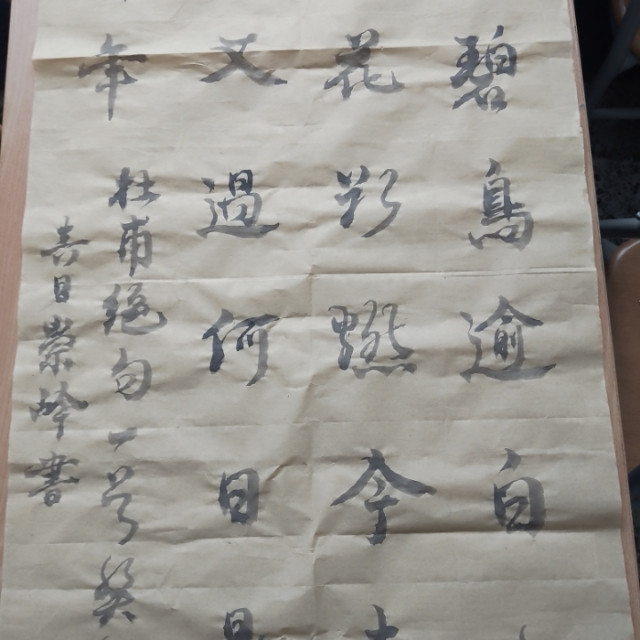 碧鳥逾白
花欲燃今
又過何日
年 杜甫絕句一首癸
吉日崇吟書